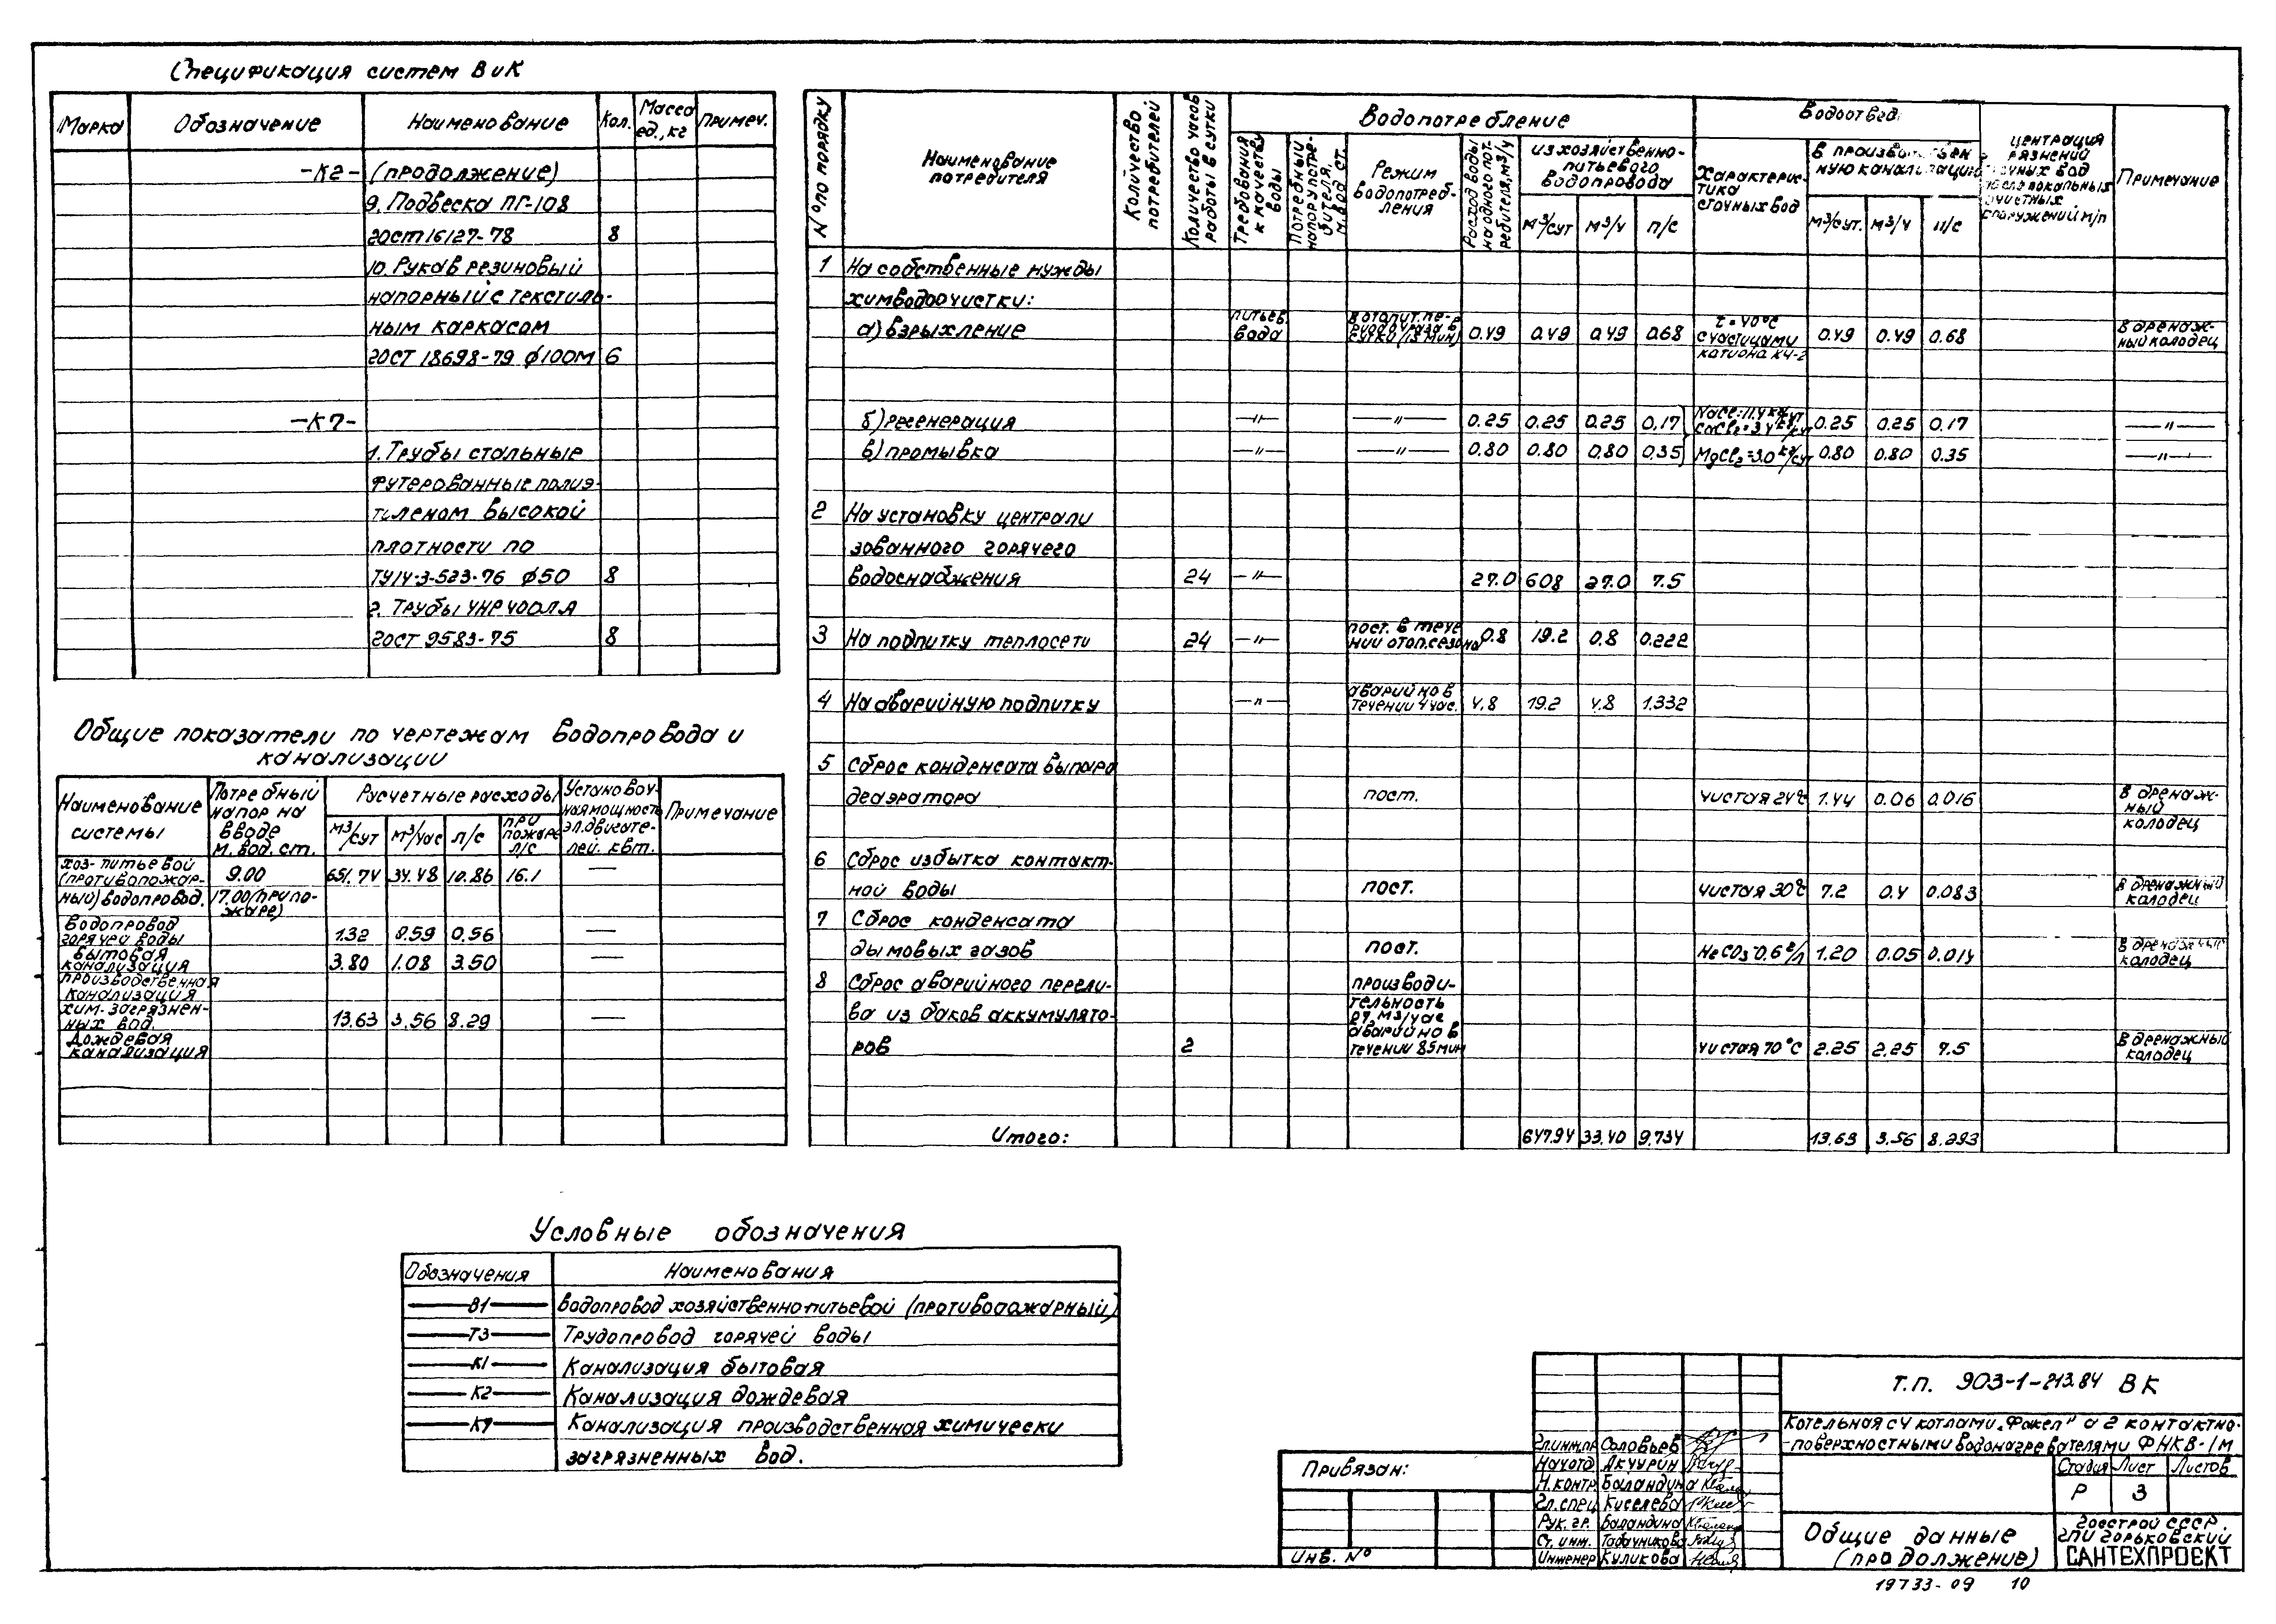 Спецификация систем ВиК
Марка Обозначение Наименование Кол. Масса ед., кг Примеч.
-К2- (продолжение)
9. Подвеска ПГ-108
ГОСТ 16127-78 8
10. Рукав резиновый
напорный с текстиль-
ным каркасом
ГОСТ 18698-79 ϕ100м 6
-К7-
1. Трубы стальные
футерованные полиэ-
тиленом высокой
плотности по
ТУ14-3-523-76 ϕ50 8
2. Трубы ЧНР ЧООЛА
ГОСТ 9583-75 8
Общие показатели по чертежам водопровода и
канализации
Наименование системы Потребный напор на вводе м. вод. ст. Расчетные расходы Установоч-ная мощность эл.двигате-лей. квт. Примечание
м³/сут м³/час л/с при пожаре л/с
хоз-питьевой (противопожар- 9.00 651.74 34.48 10.86 16.1 —
ный) водопровод. 17.00 (при по-жаре)
Водопровод горячей воды 1.32 0.59 0.56 —
Бытовая канализация 3.80 1.08 3.50 —
Производственная канализация хим. загрязнен-ных вод. 13.63 3.56 8.29 —
Дождевая канализация
№ по порядку Наименование потребителя Количество потребителей Количество часов работы в сутки Водопотребление Водоотвед. центрация рязнений очных вод после локальных очистных сооружений м/л Примечание
Требования к качеству воды Потребный напор у потре-бителя, м. вод. ст. Режим водопотреб-ления Расход воды на одного пот-ребителя, м³/ч из хозяйственно-питьевого водопровода Характерис-тика сточных вод в производствен ную канализацию
м³/сут м³/ч л/с м³/сут. м³/ч л/с
1 На собственные нужды
химводоочистки:
а) взрыхление питьев. вода в отопит. пе-риод 1 раз в сутки (12 мин) 0.49 0.49 0.49 0.68 t = 40°С с частицами катиона КУ-2 0.49 0.49 0.68 В дренаж-ный колодец
б) регенерация —"— —"— 0.25 0.25 0.25 0.17 NaCl = 11.4 кг/сут CaCl₂ = 3.4 кг/сут 0.25 0.25 0.17 —"—
в) промывка —"— —"— 0.80 0.80 0.80 0.35 MgCl₂ = 3.0 кг/сут 0.80 0.80 0.35 —"—
2 На установку централи
зованного горячего
водоснабжения 24 —"— 27.0 608 27.0 7.5
3 На подпитку теплосети 24 —"— пост. в тече нии отоп.сезона 0.8 19.2 0.8 0.222
4 На аварийную подпитку —"— аварийно в течении 4 час. 4.8 19.2 4.8 1.332
5 Сброс конденсата выпара
деаэратора пост. чистая 24°С 1.44 0.06 0.016 В дренаж-ный колодец
6 Сброс избытка контакт-
ной воды пост. чистая 30°С 7.2 0.4 0.083 В дренажный колодец
7 Сброс конденсата
дымовых газов пост. НеСО₃ 0.6 г/л 1.20 0.05 0.014 В дренажный колодец
8 Сброс аварийного перели- производи-
ва из баков аккумулято- тельность 27. м3/час
ров 2 аварийно в течении 85 мин чистая 70°С 2.25 2.25 7.5 В дренажный колодец
Итого: 647.94 33.40 9.734 13.63 3.56 8.293
Условные обозначения
Обозначения Наименования
В1 Водопровод хозяйственно-питьевой (противопожарный)
Т3 Трубопровод горячей воды
К1 Канализация бытовая
К2 Канализация дождевая
К7 Канализация производственная химически
загрязненных вод.
Привязан:
Инв. №
Гл.инж.пр Соловьев
Нач.отд Акчурин
Н.контр Баландина
Гл.спец Киселева
Рук. гр. Баландина
Ст. инж. Табачникова
Инженер Куликова
Т.П. 903-1-213.84 ВК
Котельная с 4 котлами „Факел" и 2 контактно-
-поверхностными водонагревателями ФНКВ-1М
Стадия Лист Листов
Р 3
Общие данные
(продолжение)
Госстрой СССР
ГПИ Горьковский
САНТЕХПРОЕКТ
19733-09 10